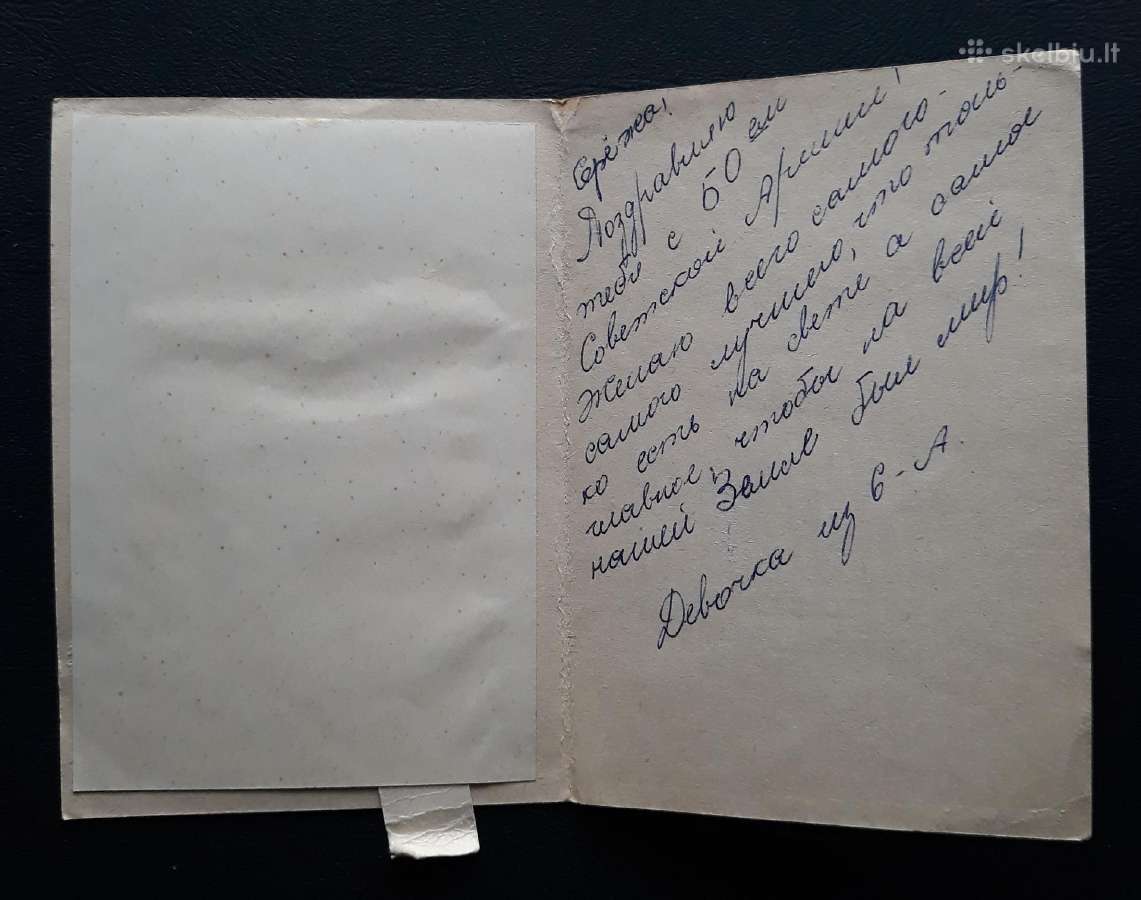 skelbiu.lt
Серёжа!
Поздравляю
тебя с 50 ем
Советской Армии!
Желаю всего самого-
самого лучшего, что толь-
ко есть на свете а самое
главное, чтобы на всей
нашей Земле был мир!
Девочка из 6-А.